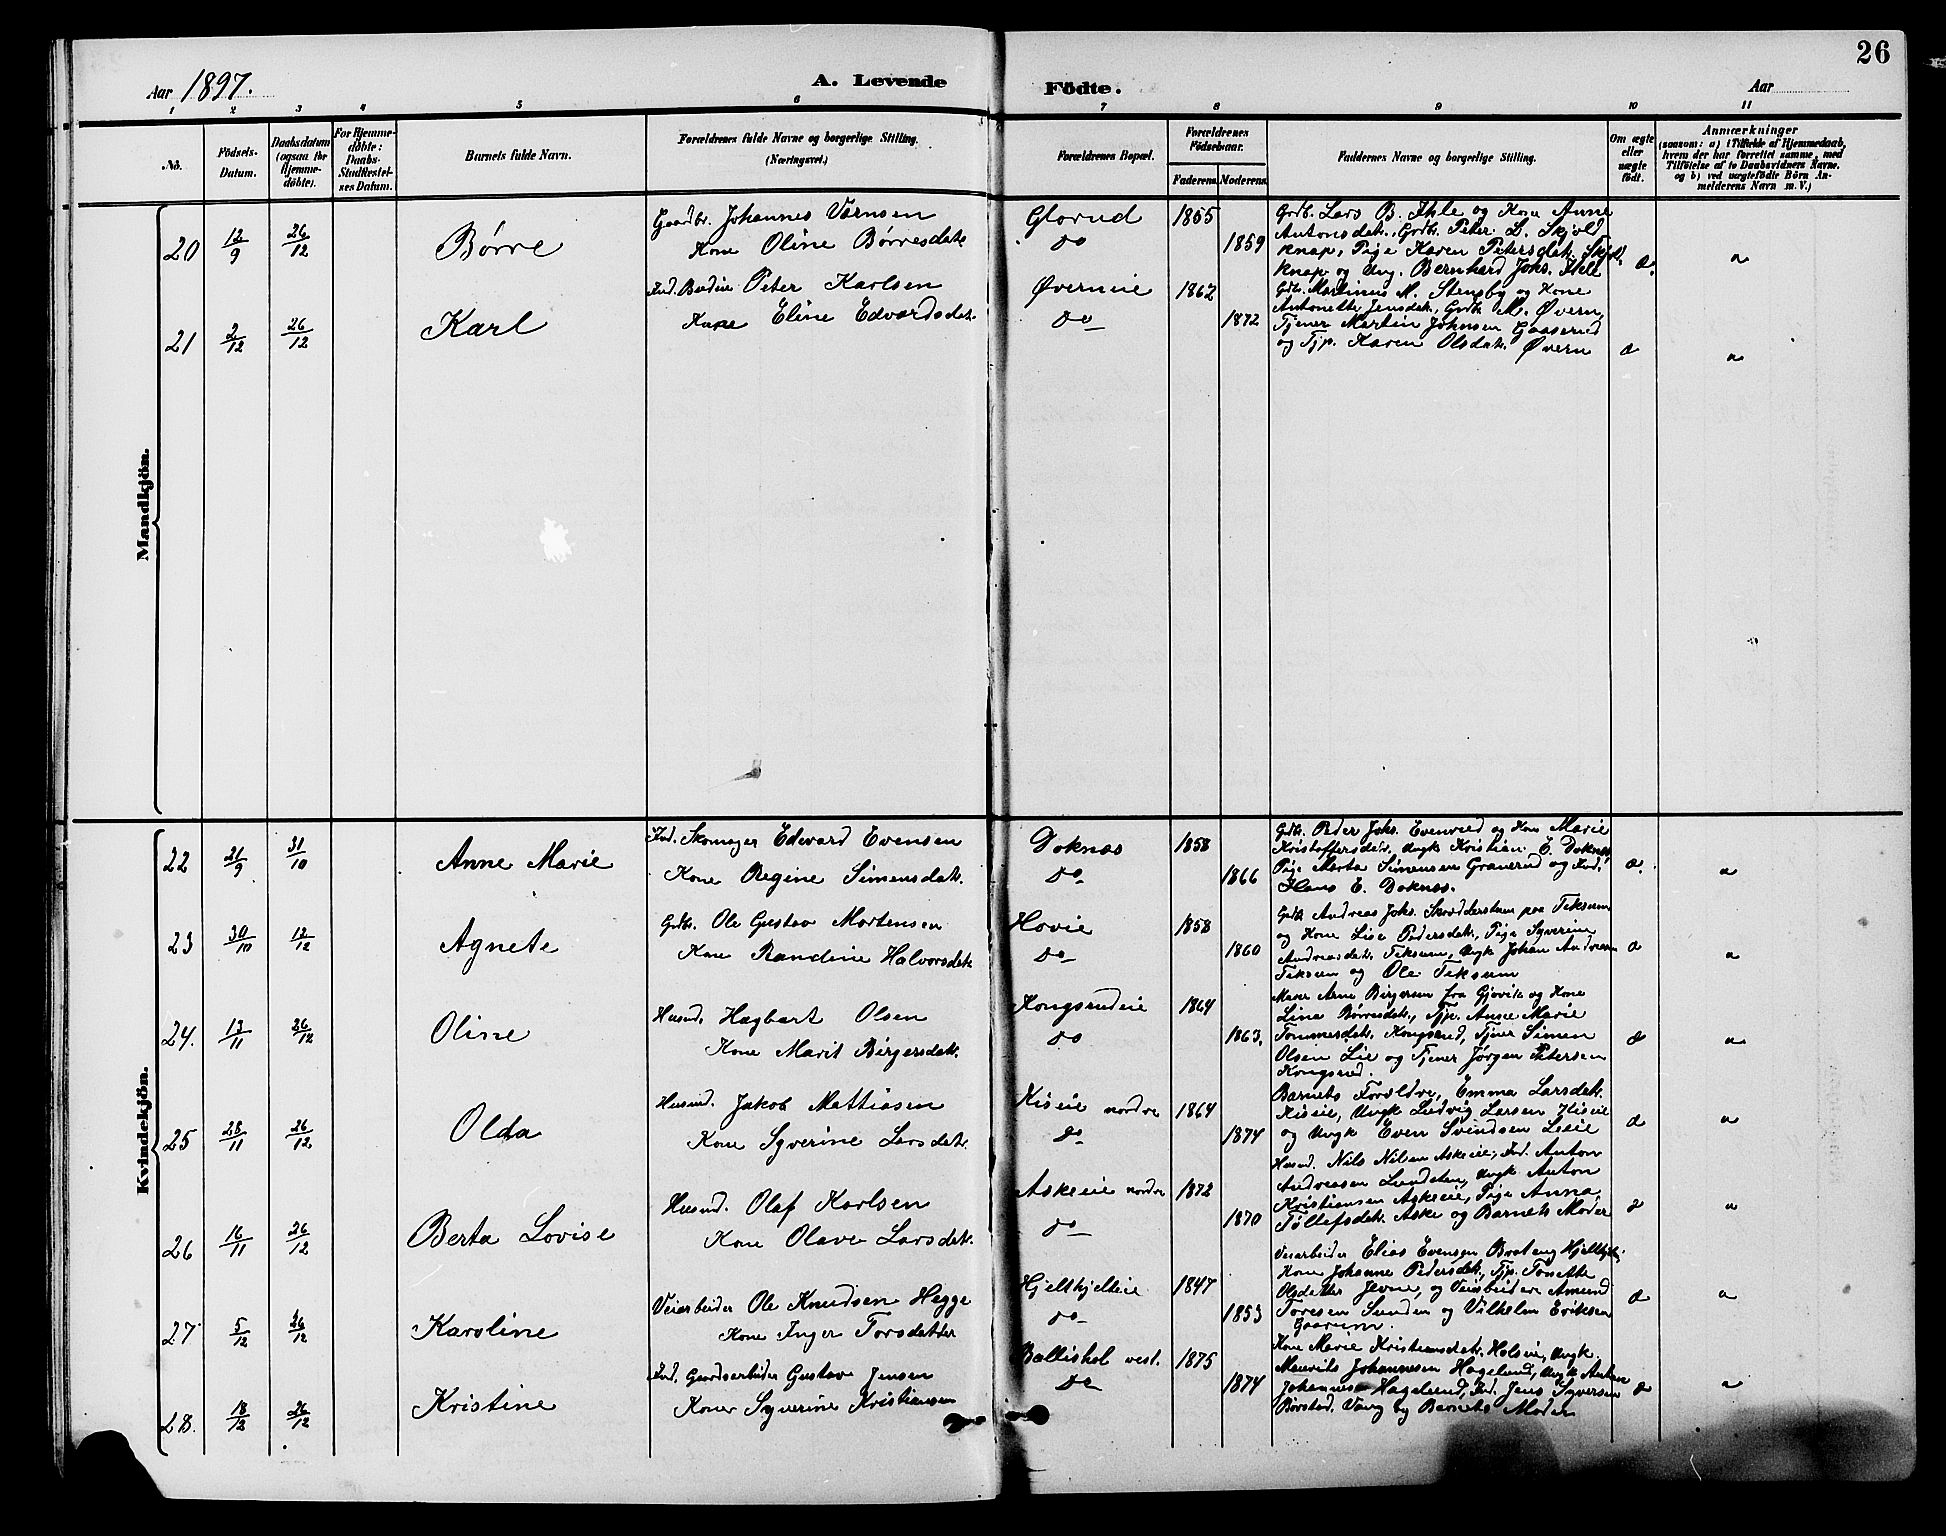 26
Aar 1897.
A. Levende
Födte.
Aar
1 2 3 4 5 6 7 8 9 10 11
No.
Födsels-
Datum.
Daabsdatum
(ogsaa for
Hjemme-
döbte).
For Hjemme-
döbte:
Daabs-
Stadfæstel-
ses Datum.
Barnets fulde Navn.
Forældrenes fulde Navne og borgerlige Stilling.
(Næringsvei.)
Forældrenes Bopæl.
Forældrenes
Födselsaar.
Faderens. Moderens.
Faddernes Navne og borgerlige Stilling.
Om ægte
eller
uægte
födt.
Anmærkninger
(saasom: a) i Tilfælde af Hjemmedaab,
hvem der har forrettet samme, med
Tilföielse af to Daabsvidners Navne.
og b) ved uægtefödte Börn An-
melderens Navn m. V.)
Mandkjön.
20 12/9 26/12 Børre
Gaardbr. Johannes Værnsen
Kone Oline Børresdatr.
Glorud
do
1855
1859
Grdb. Lars B. Ihle og Kone Anne
Antonsdatr., Grdbr. Peter L. Skjøld
knap, Pige Karen Petersdatr. Skjøld
knap og Ung. Bernhard Johs. Ihle
æ.
21 2/12 26/12 Karl
Ind. Peter Karlsen
Kone Eline Edvardsdatr.
Øverneie
do
1862
1872
Gdb. Martinus M. Stensby og Kone
Antonette Jensdatr., Grdb. M. Øvern,
Tjener Martin Johnsen Gaaserud
og Tjp. Karen Olsdatr. Øvern
æ
Kvindekjön.
22 21/9 31/10 Anne Marie
Ind. Skomager Edvard Evensen
Kone Regine Simensdatr.
Doknæs
do
1858
1866
Gdb. Peder Johs. Evenrud og Kone Marie
Kristoffersdatr., Ungk Kristian E. Doknæs
Pige Marta Simensen Graverud og Ind.
Hans E. Doknæs.
æ.
23 30/10 12/12 Agnete
Grdb. Ole Gustav Mortensen
Kone Randine Halvorsdatr.
Hovie
do
1858
1860
Grdb. Andreas Johs. Skrædderstuen paa Teksum
og Kone Lise Pedersdatr., Pige Syverine
Andreasdatr. Teksum, Ungk Johan Andersen
Teksum og Ole Teksum
æ
24. 13/11 26/12 Oline
Husmd. Hagbart Olsen
Kone Marit Birgersdatr.
Kongsrudeie
do
1864
1863.
Murer Arne Birgersen fra Gjøvik og Kone
Lina Børresdatr., Tjp. Anne Marie
Tommesdatr. Kongsrud, Tjener Simen
Olsen Lie og Tjener Jørgen Petersen
Kongsrud.
æ
25 28/11 26/12 Olda
Husmd. Jakob Mattiasen
Kone Syverine Larsdatr.
Kiseie nordre
do
1864
1874
Barnets Forældre, Emma Larsdatr.
Kiseie, Ungk Ludvig Larsen Kiseie
og Ungk Even Svendsen Lieeie
æ
26 16/11 26/12 Berta Lovise
Husmd. Olaf Karlsen
Kone Olave Larsdatr.
Askeeie nordre
do
1872
1870
Husmd. Nils Nilsen Askeeie, Ind. Anton
Andreasen Lundsten, Ungk Anton
Kristiansen Askeeie, Pige Anna
Tollefsdatr. Aske og Barnets Moder
æ
27 5/12 26/12 Karoline
Veiarbeider Ole Knudsen Hegge
Kone Inger Torsdatter
Hjelthjelteie
do
1847
1853
Veiarbeider Elias Evensen Braten
Kone Johanne Pedersdatr., Tjp. Tonette
Olsdatter Jevne, og Veiarbeidere Amund
Toresen Sunden og Vilhelm Eriksen
æ
28. 18/12 26/12 Kristine
Ind. Gaardsarbeider Gustav Jensen
Kone Syverine Kristiansen
Ballishol vest.
do
1875
1874
Kone Marie Kristiansdatr. Holseie, Ungk.
Maurits Johannesen Hagelund, Ungk Anton
Johannesen Hagelund, Ind. Jens Syversen
Børstad, Vang og Barnets Moder
æ